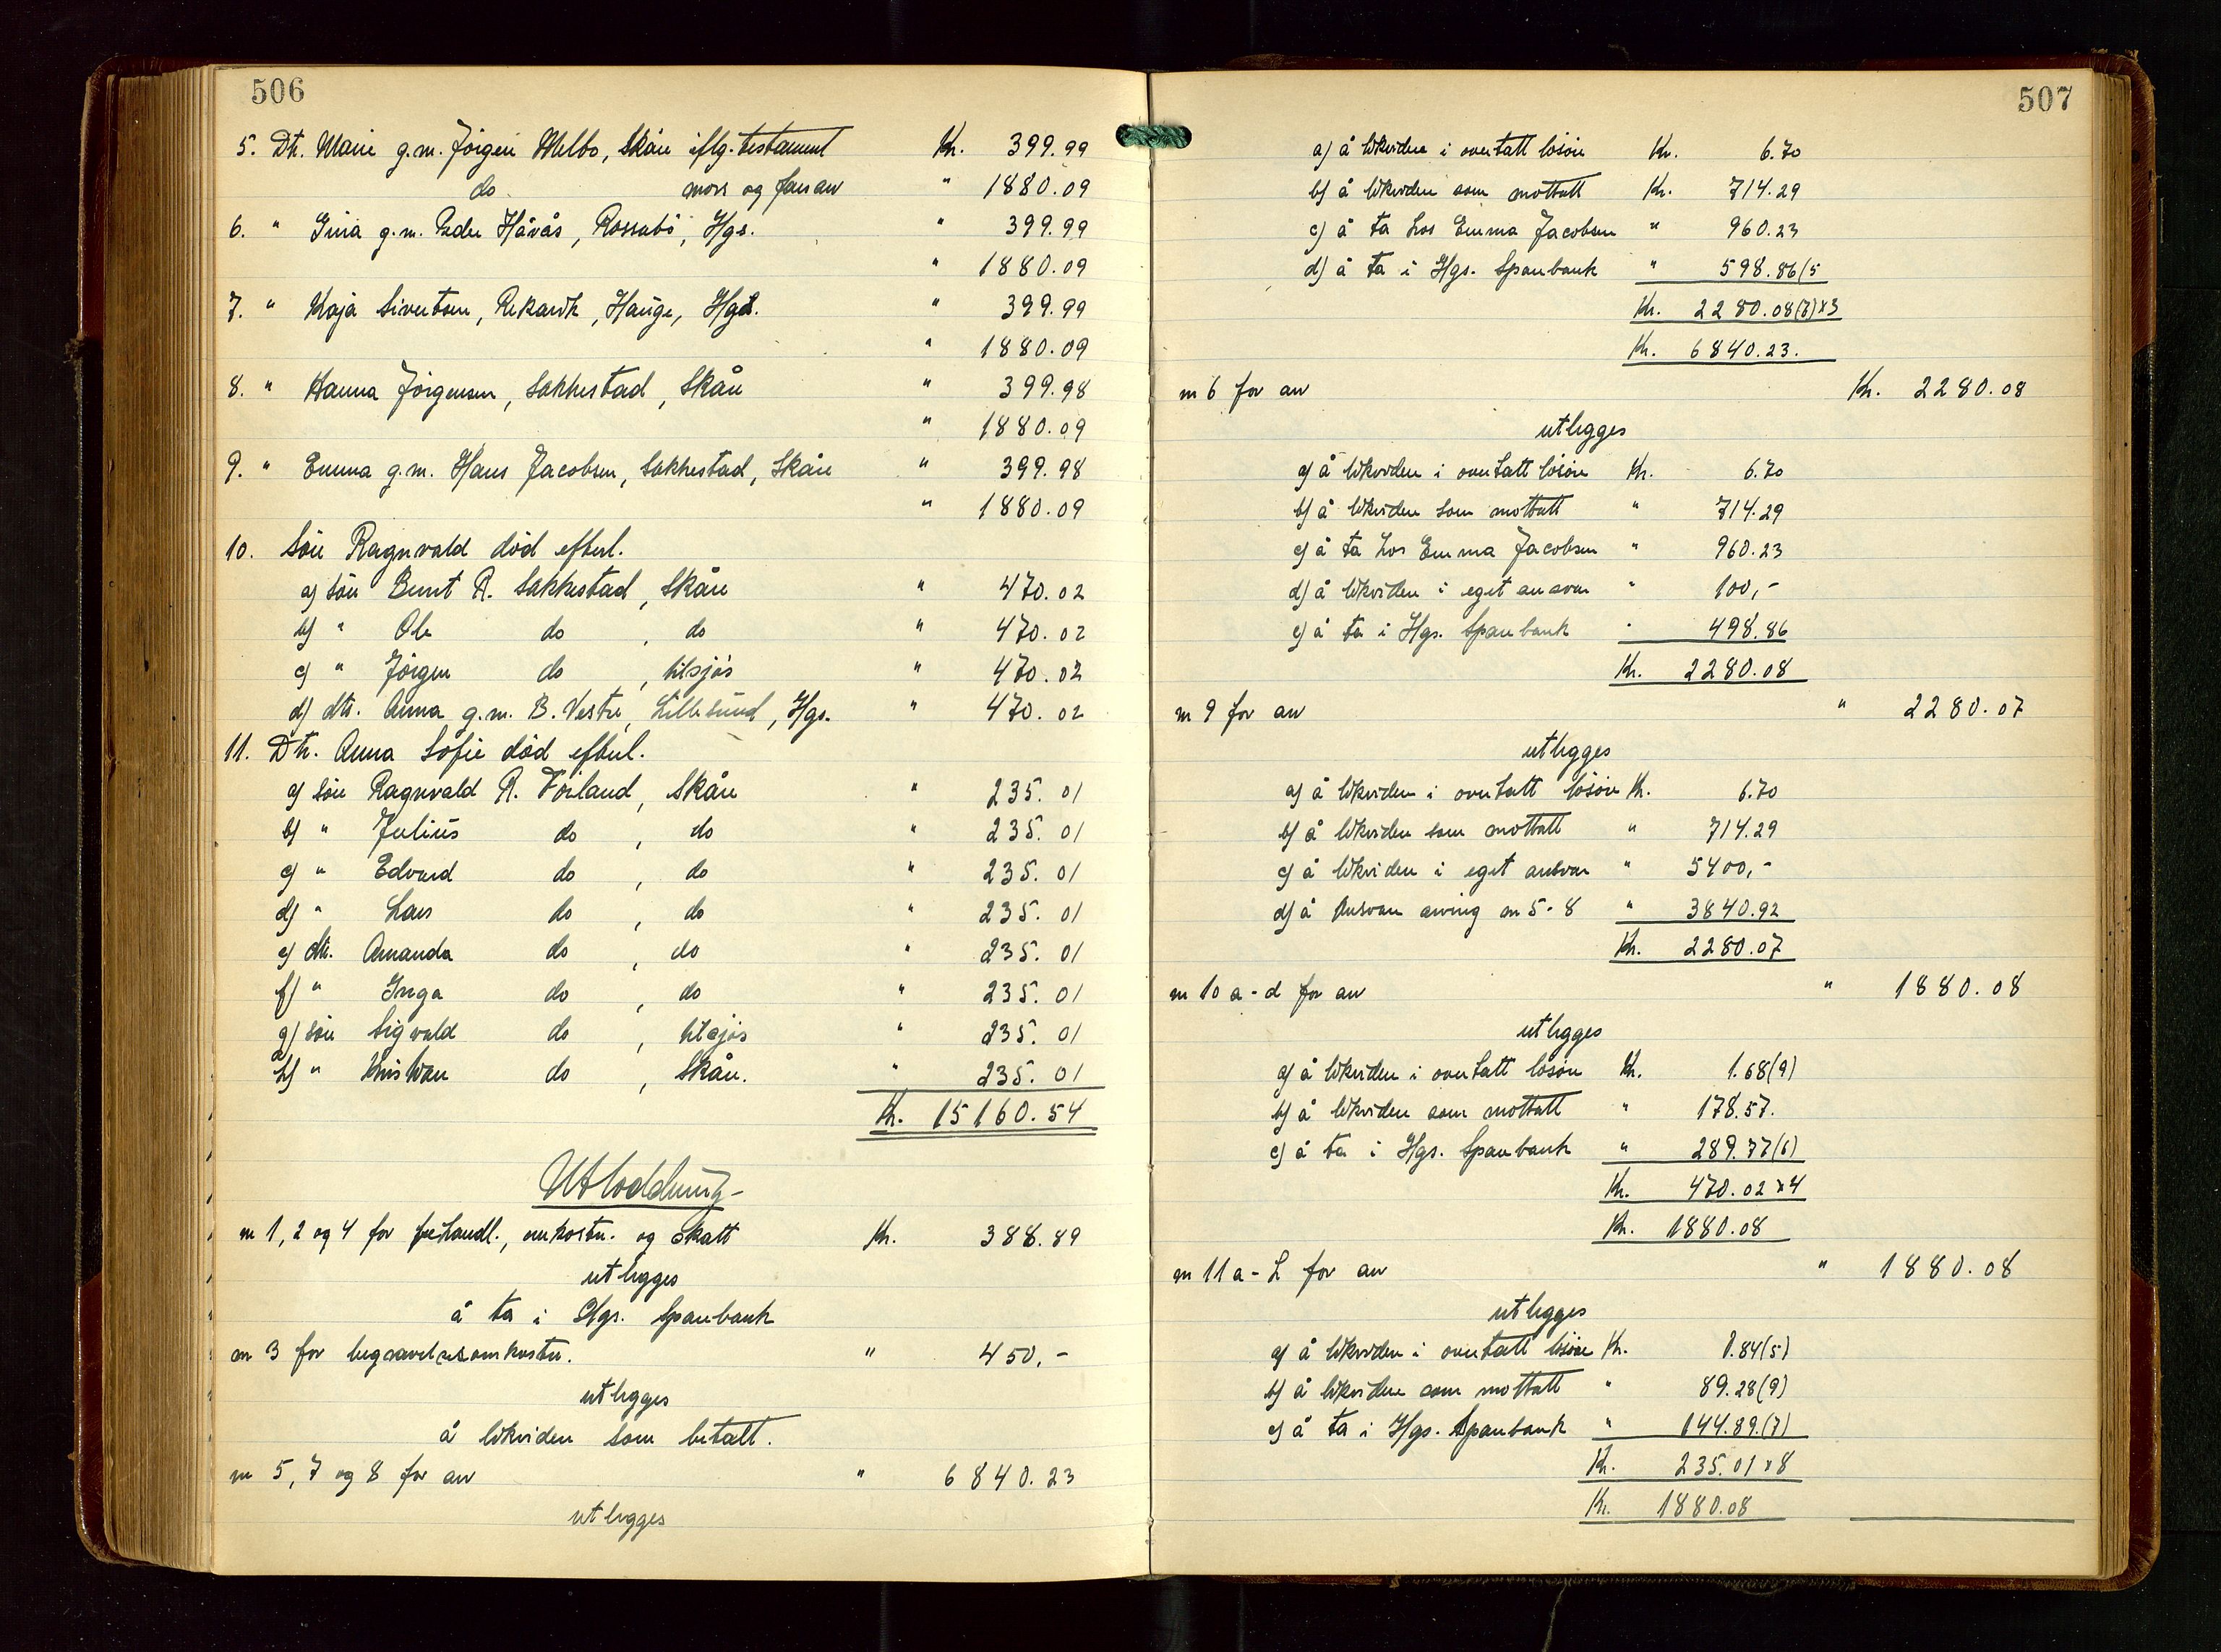 506
5. Dtr. Marie g.m. Jörgen Melbo, Skåre iflg. testament Kr. 399.99
do mors og fars arv " 1880.09
6. " Gina g.m. Peder Håvås, Rossabö, Hgs. " 399.99
" 1880.09
7. " Kaja Sivertsen, Rekarvik, Hauge, Hgs. " 399.99
" 1880.09
8. " Hanna Jörgensen, Sakkestad, Skåre " 399.98
" 1880.09
9. " Emma g.m. Hans Jacobsen, Sakkestad, Skåre " 399.98
" 1880.09
10. Sön Ragnvald död efterl.
a) sön Bernt R. Sakkestad, Skåre " 470.02
b) " Ole do , do " 470.02
c) " Jörgen do , tilsjös " 470.02
d) dtr. Anna g.m. B. Vestre, Lillesund, Hgs. " 470.02
11. Dtr. Anna Sofie död efterl.
a) sön Ragnvald R. Förland, Skåre " 235.01
b) " Julius do , do " 235.01
c) " Edvard do , do " 235.01
d) " Lars do , do " 235.01
e) dtr. Amanda do , do " 235.01
f) " Inga do , do " 235.01
g) sön Sigvald do , tilsjös " 235.01
h) " Kristian do , Skåre. " 235.01
Kr. 15160.54
Utloddning
nr 1, 2 og 4 for behandl., omkostn. og skatt Kr. 388.89
utlegges
å ta i Hgs. Sparebank
nr 3 for begravelsesomkostn. " 450,-
utlegges
å likvidere som betalt.
nr 5, 7 og 8 for arv " 6840.23
utlegges
507
a) å likvidere i overtatt lösöre Kr. 6.70
b) å likvidere som mottatt Kr. 714.29
c) å ta hos Emma Jacobsen " 960.23
d) å ta i Hgs. Sparebank " 598.86(5
Kr. 2280.08(7)x3
Kr. 6840.23.
nr 6 for arv Kr. 2280.08
utlegges
a) å likvidere i overtatt lösöre Kr. 6.70
b) å likvidere som mottatt " 714.29
c) å ta hos Emma Jacobsen " 960.23
d) å likvidere i eget ansvar " 100,-
e) å ta i Hgs. Sparebank " 498.86
Kr. 2280.08
nr 9 for arv " 2280.07
utlegges
a) å likvidere i overtatt lösöre Kr. 6.70
b) å likvidere som mottatt " 714.29
c) å likvidere i eget ansvar " 5400,-
d) å ansvare arving nr 5-8 " 3840.92
Kr. 2280.07
nr 10 a-d for arv " 1880.08
utlegges
a) å likvidere i overtatt lösöre Kr. 1.68(9)
b) å likvidere som mottatt " 178.57.
c) å ta i Hgs. Sparebank " 289.77(6)
Kr. 470.02x4
Kr. 1880.08
nr 11 a-h for arv " 1880.08
utlegges
a) å likvidere i overtatt lösöre Kr. 0.84(5)
b) å likvidere som mottatt " 89.28(9)
c) å ta i Hgs. Sparebank " 144.89.(7)
Kr. 235.01x8
Kr. 1880.08